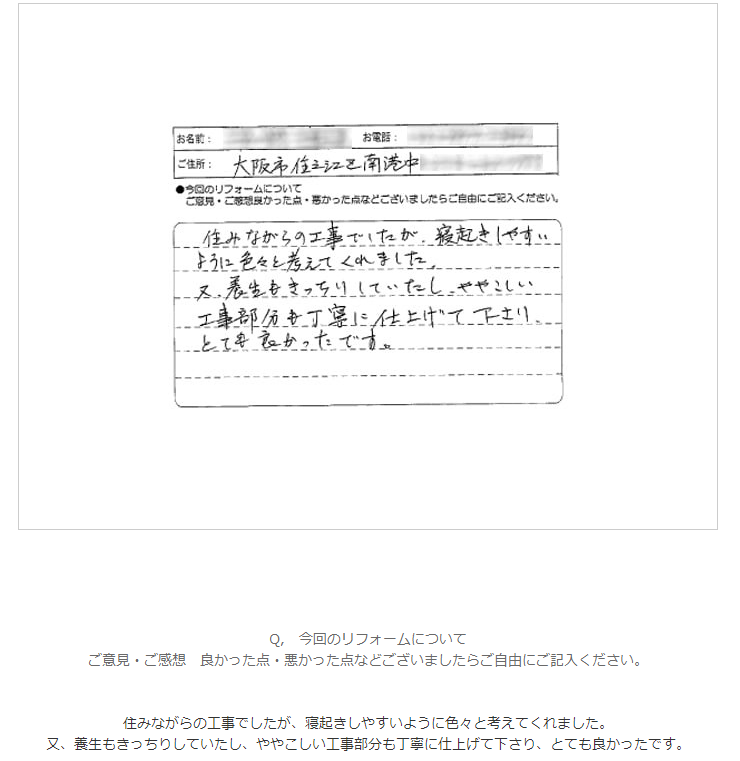 お名前：
お電話：
ご住所： 大阪市住之江区南港中
●今回のリフォームについて
ご意見・ご感想良かった点・悪かった点などございましたらご自由にご記入ください。
住みながらの工事でしたが、寝起きしやすい
ように色々と考えてくれました。
又、養生もきっちりしていたし、ややこしい
工事部分も丁寧に仕上げて下さり、
とても良かったです。
Q,　今回のリフォームについて
ご意見・ご感想　良かった点・悪かった点などございましたらご自由にご記入ください。
住みながらの工事でしたが、寝起きしやすいように色々と考えてくれました。
又、養生もきっちりしていたし、ややこしい工事部分も丁寧に仕上げて下さり、とても良かったです。